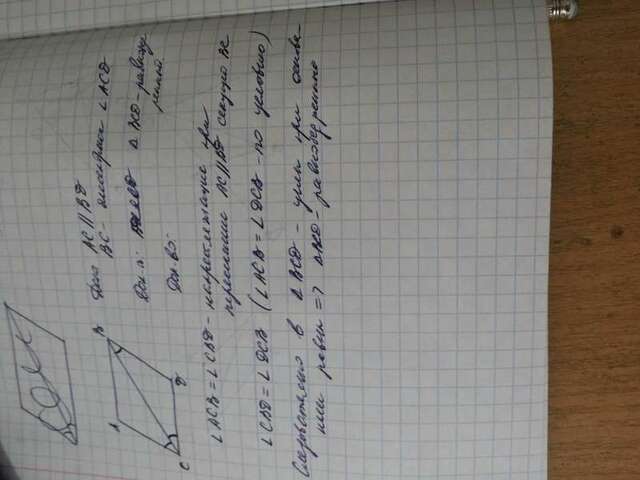 A
B
C
D
Дано AC || BD
BC - биссектриса ∠ACD
Док-ть ΔBCD - равнобед
ренный
Док-во:
∠ACB = ∠CBD - накрест лежащие при
пересечении AC || BD секущей BC
∠CBD = ∠DCB (∠ACB = ∠DCB - по условию)
Следовательно в ΔBCD - углы при основа
нии равны => ΔBCD - равнобедренный